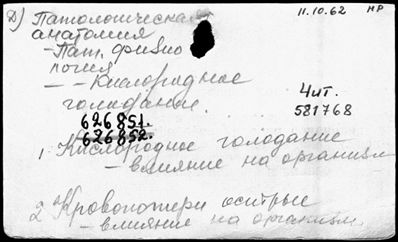 11.10.62 НР
Д) Патологическая
анатомия
- Пат. физио
логия
- - Кислородное
голодание.
Чит.
581768
626851.
626852.
1. Кислородное голодание
- влияние на организм
2 Кровопотери острые
- влияние на организм.